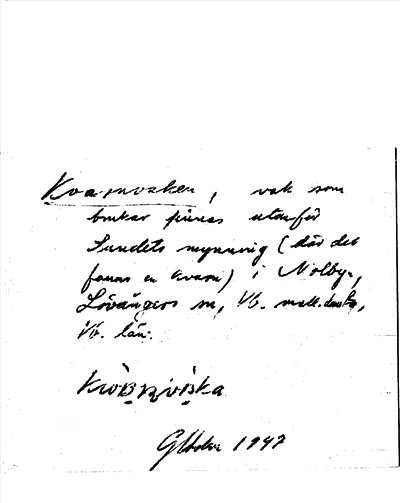 Kvarnvaken, vak som
brukar finnas utanför
Sundets mynning (där det
fanns en kvarn) i Nolbyn,
Lövångers sn, Vb.
Vb. län.
1947